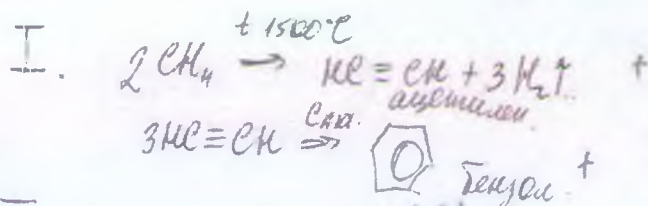 I. 2CH₄ t 1500°C → HC≡CH + 3H₂↑ +
ацетилен
3HC≡CH Cакт. ⇒ бензол +